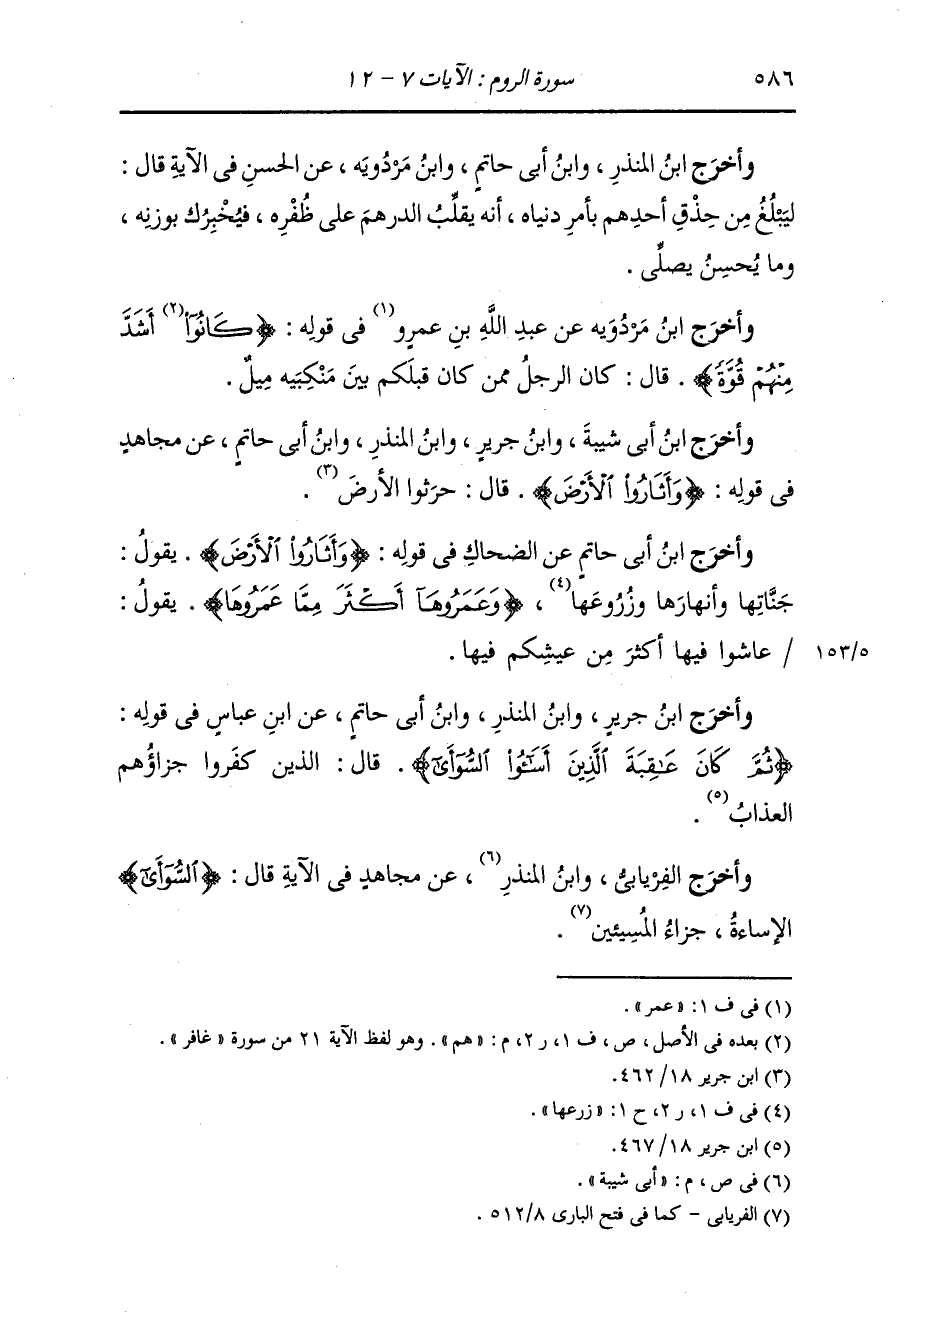 ٥٨٦ سورة الروم : الآيات ٧ - ١٢
وأخرَج ابنُ المنذرِ ، وابنُ أبى حاتمٍ ، وابنُ مَرْدُويَه ، عن الحسنِ فى الآيةِ قال :
ليَبْلُغُ مِن حِذْقِ أحدِهم بأمرِ دنياه ، أنه يقلِّبُ الدرهمَ على ظُفْرِه ، فيُخْبِرُك بوزنِه ،
وما يُحسِنُ يصلِّى .
وأخرَج ابنُ مَرْدُوَيه عن عبدِ اللَّهِ بنِ عمرٍو(١) فى قولِه : ﴿كَانُوٓا۟(٢) أَشَدَّ
مِنْهُمْ قُوَّةً﴾ . قال : كان الرجلُ ممن كان قبلَكم بينَ مَنْكِبَيه مِيلٌ .
وأخرَج ابنُ أبى شيبةَ ، وابنُ جريرٍ ، وابنُ المنذرِ ، وابنُ أبى حاتمٍ ، عن مجاهدٍ
فى قولِه : ﴿وَأَثَارُوا۟ ٱلْأَرْضَ﴾ . قال : حرَثوا الأرضَ(٣) .
وأخرَج ابنُ أبى حاتمٍ عن الضحاكِ فى قولِه : ﴿وَأَثَارُوا۟ ٱلْأَرْضَ﴾ . يقولُ :
جَنَّاتِها وأنهارَها وزُرُوعَها(٤) ، ﴿وَعَمَرُوهَآ أَكْثَرَ مِمَّا عَمَرُوهَا﴾ . يقولُ :
١٥٣/٥ / عاشوا فيها أكثرَ مِن عيشِكم فيها .
وأخرَج ابنُ جريرٍ ، وابنُ المنذرِ ، وابنُ أبى حاتمٍ ، عن ابنِ عباسٍ فى قولِه :
﴿ثُمَّ كَانَ عَٰقِبَةَ ٱلَّذِينَ أَسَٰٓـُٔوا۟ ٱلسُّوٓأَىٰٓ﴾ . قال : الذين كفَروا جزاؤُهم
العذابُ(٥) .
وأخرَج الفِرْيابىُّ ، وابنُ المنذرِ(٦) ، عن مجاهدٍ فى الآيةِ قال : ﴿ٱلسُّوٓأَىٰٓ﴾
الإساءةُ ، جزاءُ المُسِيئين(٧) .
(١) فى ف ١: «عمر» .
(٢) بعده فى الأصل ، ص ، ف ١، ر ٢، م : «هم» . وهو لفظ الآية ٢١ من سورة «غافر» .
(٣) ابن جرير ١٨/ ٤٦٢.
(٤) فى ف ١، ر ٢، ح ١: «زرعها» .
(٥) ابن جرير ١٨/ ٤٦٧.
(٦) فى ص ، م : «أبى شيبة» .
(٧) الفريابى - كما فى فتح البارى ٥١٢/٨ .